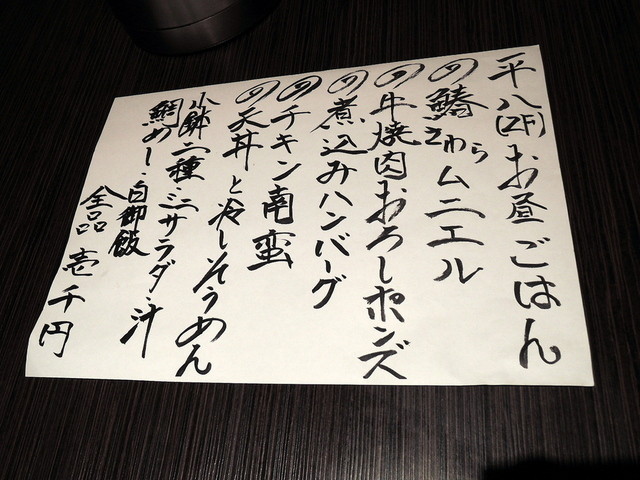 平八(2F)お昼ごはん
の鰆さわらムニエル
の牛焼肉おろしポンズ
の煮込みハンバーグ
のチキン南蛮
の天丼と冷しそうめん
小鉢二種・ミニサラダ・汁
鯛めし・白御飯
全品壱千円